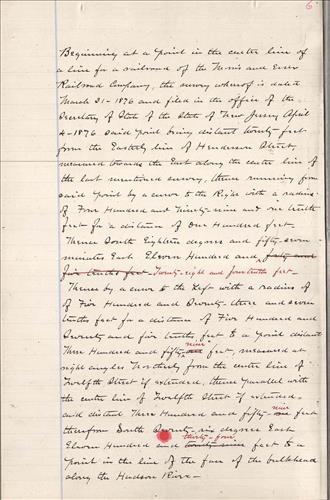 6
Beginning at a point in the center line of
a line for a railroad of the Morris and Essex
Railroad Company, the survey whereof is dated
March 31-1876 and filed in the office of the
Secretary of State of the State of New Jersey April
4-1876 said point being distant twenty feet
from the Easterly line of Henderson Street,
measured towards the East along the center line of
the last mentioned survey, thence running from
said point by a curve to the Right with a radius
of Four Hundred and Ninety-nine and six tenths
feet for a distance of One Hundred feet.
Thence South Eighteen degrees and fifty-seven
minutes East Eleven Hundred and forty and
five tenths feet. Twenty-eight and four tenths feet.
Thence by a curve to the Left with a radius of
of Five Hundred and Seventy three and seven
tenths feet for a distance of Five Hundred and
Seventy and five tenths feet to a point distant
nine
Three Hundred and fifty- feet, measured at
right angles Northerly from the center line of
Twelfth Street if extended, thence parallel with
the center line of Twelfth Street if extended
nine
and distant Three Hundred and fifty- feet
therefrom South Seventy-six degrees East
thirty-four
Eleven Hundred and twenty-nine feet to a
point in the line of the face of the bulkhead
along the Hudson River.